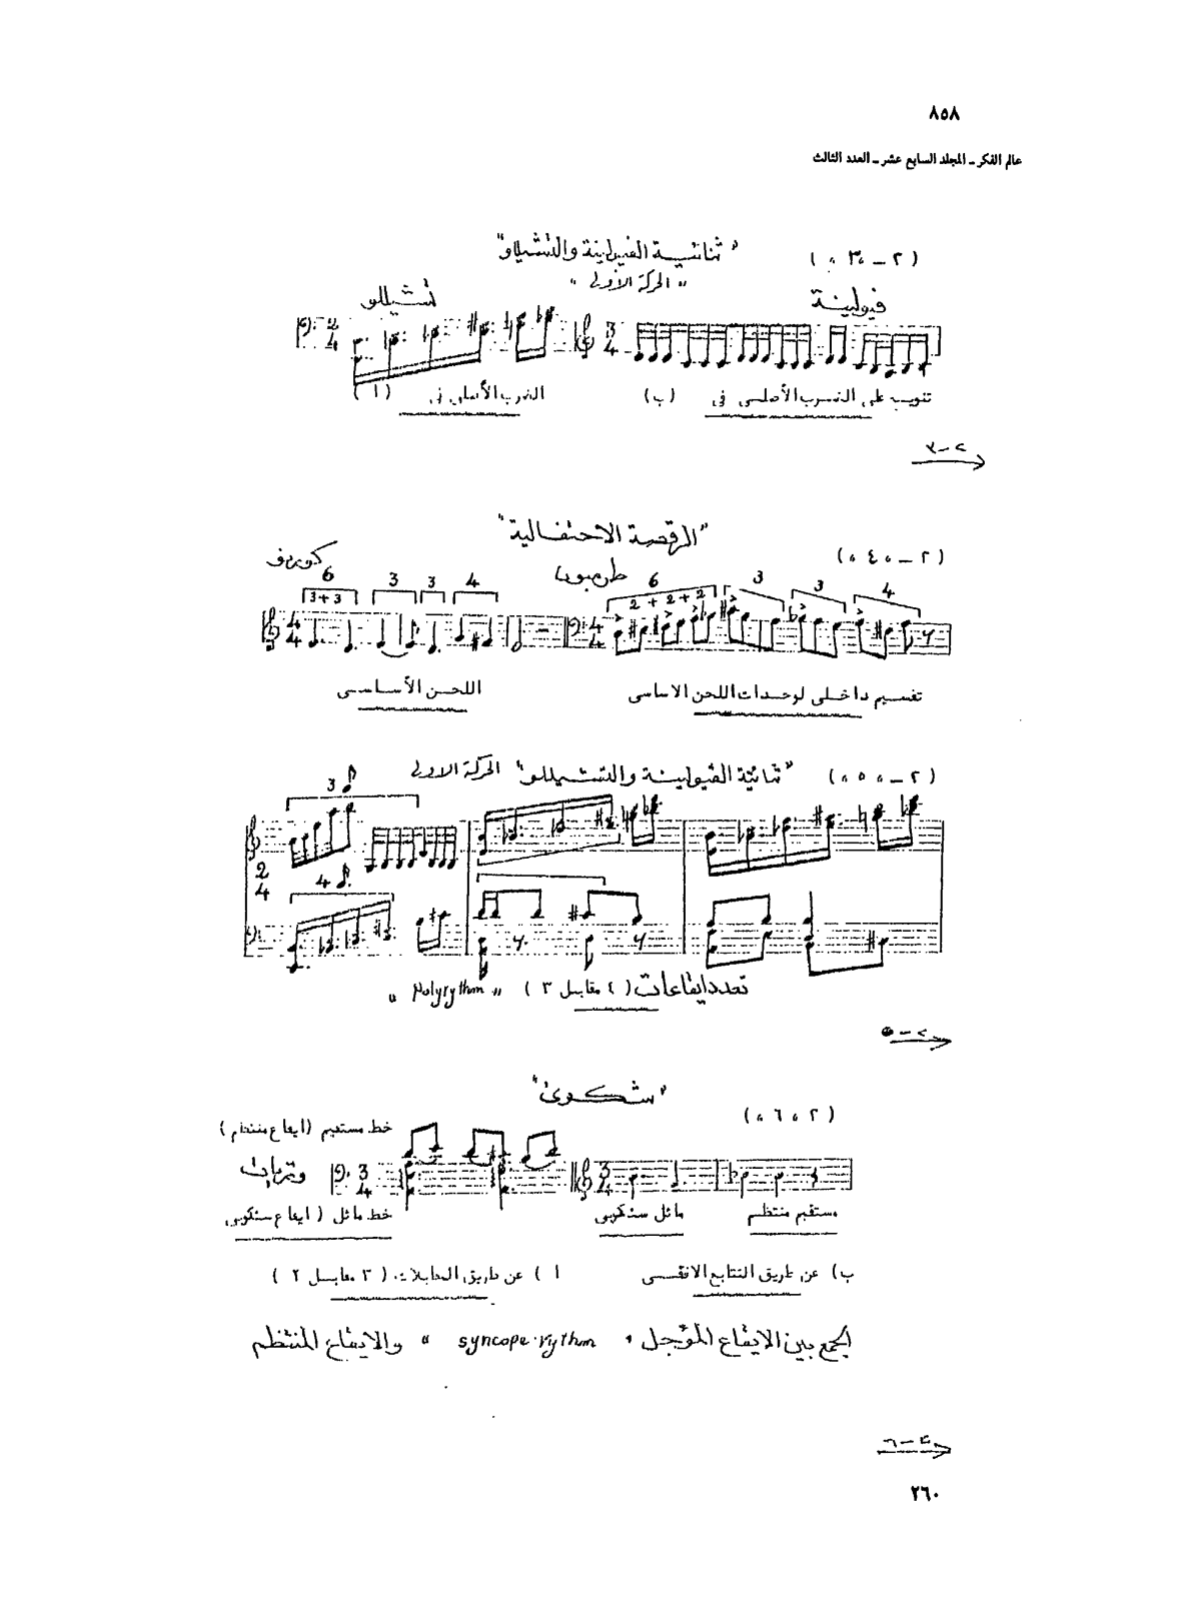 ٨٥٨
عالم الفكر ـ المجلد السابع عشر ـ العدد الثالث
(٢ - ٣ ،)
"ثنائية الفيولينة والتشيللو"
"الحركة الأولى"
فيولينة
تشيللو
2 4
3 4
تنويب على الضرب الأصلى فى (ب)
الضرب الأصلى فى (ا)
٢-٣
(٢ - ٤ ،)
"الرقصة الاحتفالية"
كورنو
6 3 3 4
3+3
6 3 3 4
2 + 2 + 2
4 4
4 4
تقسيم داخلى لوحدات اللحن الاساسى
اللحن الأساسى
(٢ - ٥ ،) "ثنائية الفيولينة والتشيللو" الحركة الاولى
3
2 4
4
تعدد ايقاعات (٤ مقابل ٣) "Polyrythm"
٢-٥
(٢ ، ٦ ،)
"شكوى"
خط مستقيم (ايقاع منتظم)
وتريات
3 4
3 4
خط مائل (ايقاع سنكوبى
مائل سنكوبى
مستقيم منتظم
ا) عن طريق المقابلات (٣ مقابل ٢)
ب) عن طريق التتابع الافقى
الجمع بين الايقاع المؤجل "syncope.rythm" والايقاع المنتظم
٢-٦
٢٦٠